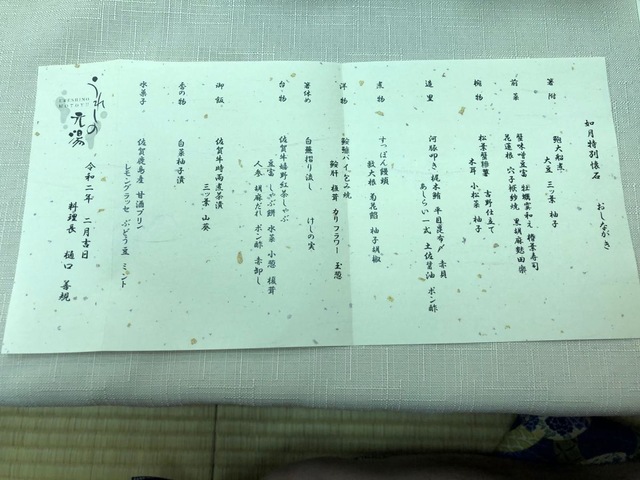 如月特別懐石
おしながき
箸附
鮑大船煮
大豆 三ッ葉 柚子
前菜
蟹味噌豆富 牡蠣雲和え 椿寿司
花蓮根 穴子板紗焼 黒胡麻麩田楽
椀物
松葉蟹糝薯 吉野仕立て
木耳 小松菜 柚子
造里
河豚叩き 梶木鮪 平目昆布〆 赤貝
あしらい一式 土佐醤油 ポン酢
煮物
すっぽん饅頭
敷大根 菊花餡 柚子胡椒
洋物
鮟鱇パイとみ焼
鮟肝 椎茸 カリフラワー 玉葱
箸休め
白蕪摺り流し けしの実
台物
佐賀牛嬉野紅茶しゃぶ
豆富 しゃぶ餅 水菜 小葱 椎茸
人参 胡麻だれ ポン酢 赤卸し
御飯
佐賀牛時雨煮茶漬
三ッ葉 山葵
香の物
白菜柚子漬
水菓子
佐賀鹿島産 甘酒プリン
レモングラッセ ぶどう豆 ミント
令和二年 二月吉日
料理長 樋口 善規
うれしの
元湯
URESHINO
MOTOYU